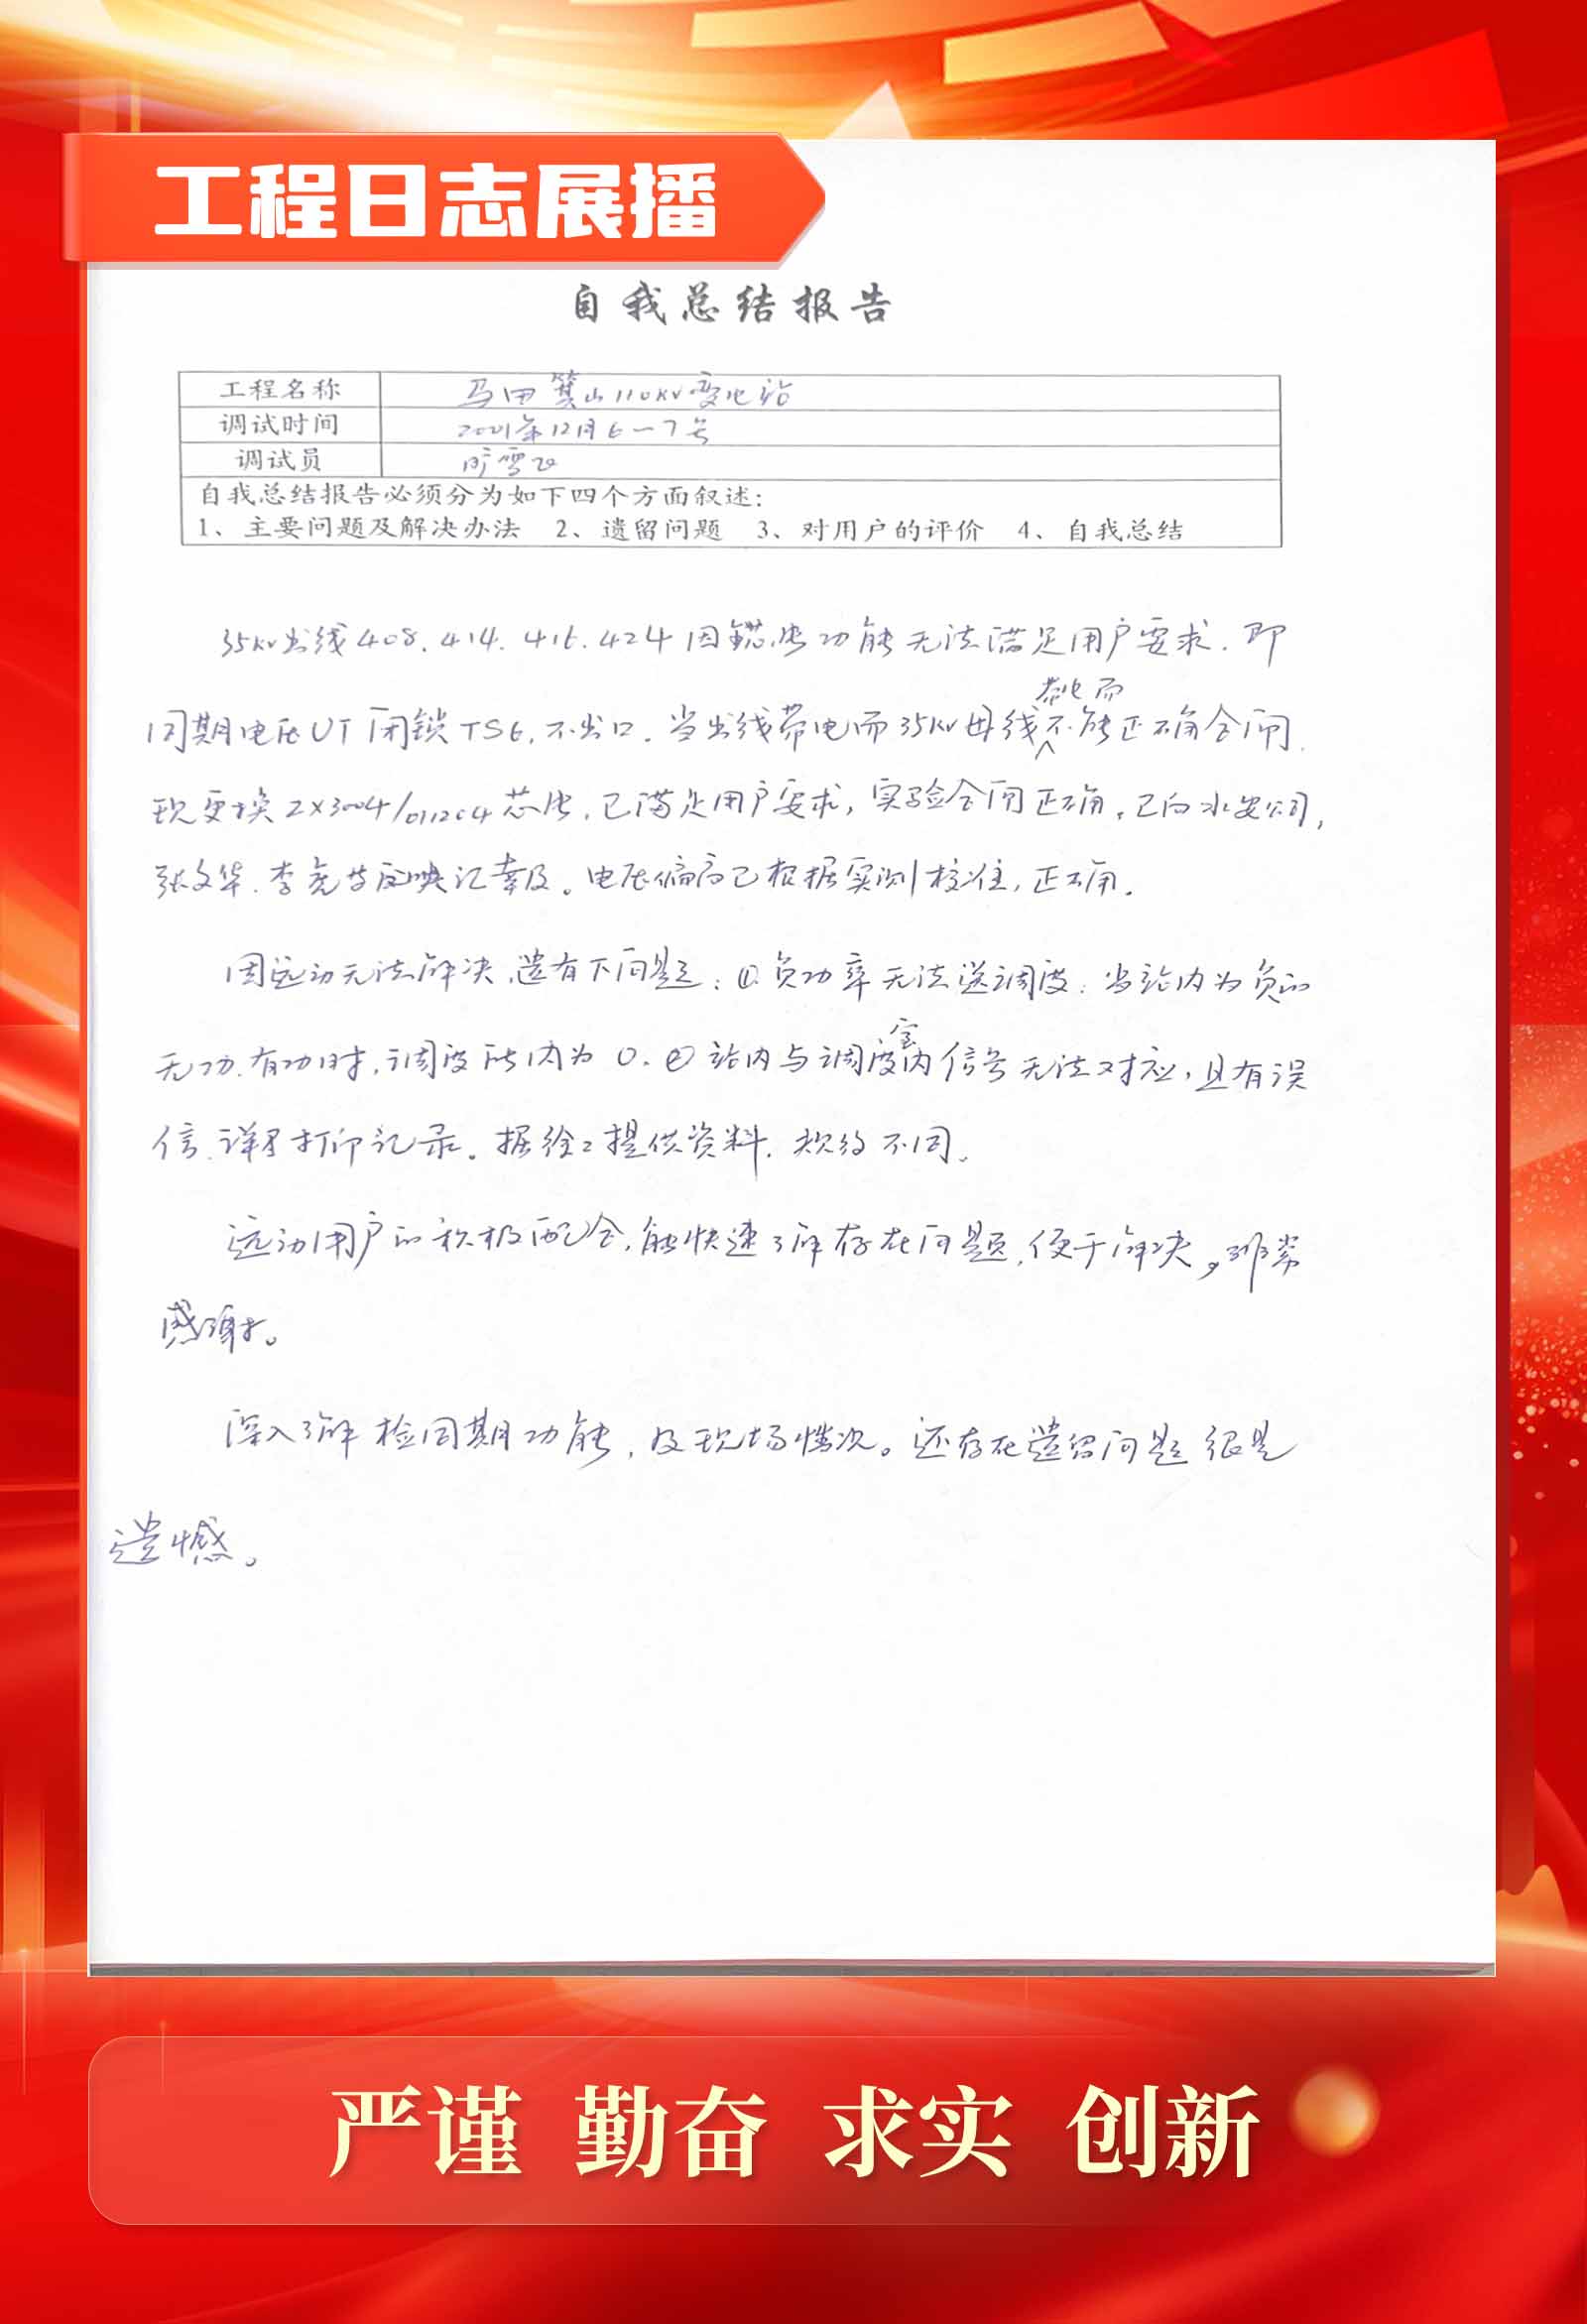 工程日志展播
自我总结报告
工程名称 马田箕山110KV变电站
调试时间 2001年12月6一7号
调试员
自我总结报告必须分为如下四个方面叙述:
1、主要问题及解决办法 2、遗留问题 3、对用户的评价 4、自我总结
35KV出线408.414.416.424因芯片功能无法满足用户要求.即
带电而
同期电压UT闭锁TS6,不出口.当出线带电而35KV母线不能正确合闸.
现更换ZX3004/011204芯片,已满足用户要求,实验合闸正确.已向水安公司,
张文华.李亮等反映记录及。电压偏高已根据实测校准,正确.
因远动无法解决,遗有下问题:①负功率无法送调度.当站内为负的
室
无功.有功时,调度所内为0.②站内与调度内信号无法对应,且有误
信.详见打印记录。据徐工提供资料.规约不同.
远动用户的积极配合,能快速了解存在问题,便于解决,非常
感谢。
深入了解检同期功能,及现场情况。还存在遗留问题很是
遗憾。
严谨 勤奋 求实 创新